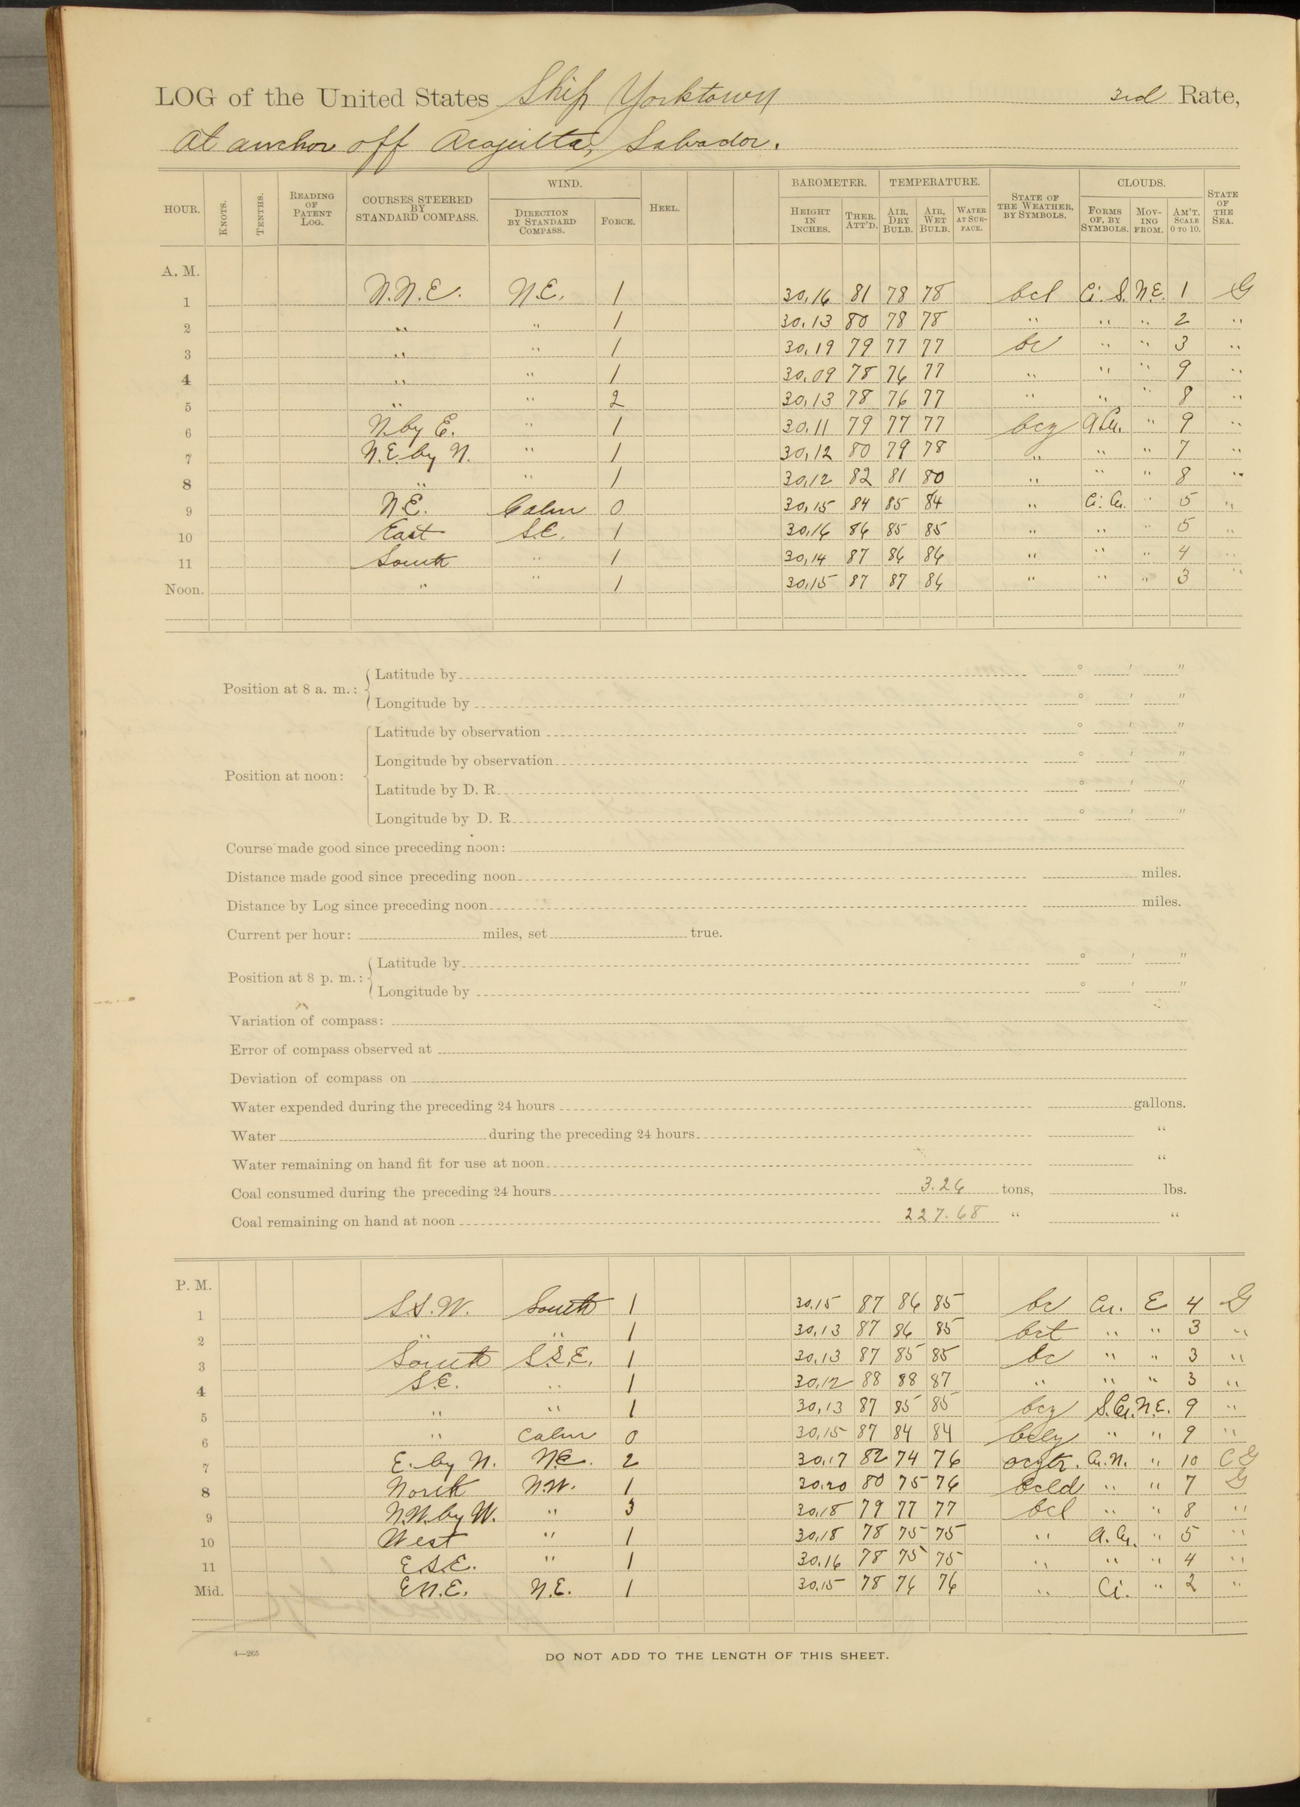 LOG of the United States Ship Yorktown 3rd Rate,
At anchor off Acajutla, Salvador.
HOUR. KNOTS. TENTHS. READING OF PATENT LOG. COURSES STEERED BY STANDARD COMPASS. WIND. DIRECTION BY STANDARD COMPASS. FORCE. HEEL. BAROMETER. HEIGHT IN INCHES. THER. ATT'D. TEMPERATURE. AIR, DRY BULB. AIR, WET BULB. WATER AT SURFACE. STATE OF THE WEATHER, BY SYMBOLS. CLOUDS. FORMS OF, BY SYMBOLS. MOVING FROM. AM'T, SCALE 0 TO 10. STATE OF THE SEA.
A. M.
1 N.N.E. N.E. 1 30.16 81 78 78 bcl Ci. S. N.E. 1 G
2 " " 1 30.13 80 78 78 " " " 2 "
3 " " 1 30.19 79 77 77 bc " " 3 "
4 " " 1 30.09 78 76 77 " " " 9 "
5 " " 2 30.13 78 76 77 " " " 8 "
6 N. by E. " 1 30.11 79 77 77 bcz A.Cu. " 9 "
7 N.E. by N. " 1 30.12 80 79 78 " " " 7 "
8 " " 1 30.12 82 81 80 " " " 8 "
9 N.E. Calm 0 30.15 84 85 84 " Ci. Cu. " 5 "
10 East S.E. 1 30.16 86 85 85 " " " 5 "
11 South " 1 30.14 87 86 86 " " " 4 "
Noon. " " 1 30.15 87 87 86 " " " 3 "
Position at 8 a. m.: Latitude by ° ' "
Longitude by ° ' "
Position at noon: Latitude by observation ° ' "
Longitude by observation ° ' "
Latitude by D. R. ° ' "
Longitude by D. R. ° ' "
Course made good since preceding noon:
Distance made good since preceding noon miles.
Distance by Log since preceding noon miles.
Current per hour: miles, set true.
Position at 8 p. m.: Latitude by ° ' "
Longitude by ° ' "
Variation of compass:
Error of compass observed at
Deviation of compass on
Water expended during the preceding 24 hours gallons.
Water during the preceding 24 hours "
Water remaining on hand fit for use at noon "
Coal consumed during the preceding 24 hours 3.26 tons, lbs.
Coal remaining on hand at noon 227.68 " "
P. M.
1 S.S.W. South 1 30.15 87 86 85 bc Cu. E 4 G
2 " " 1 30.13 87 86 85 bct " " 3 "
3 South S.S.E. 1 30.13 87 85 85 bc " " 3 "
4 S.E. " 1 30.12 88 88 87 " " " 3 "
5 " " 1 30.13 87 85 85 bcz S.Cu. N.E. 9 "
6 " Calm 0 30.15 87 84 84 " " 9 "
7 E. by N. N.E. 2 30.17 82 74 76 Cu.N. " 10 C G
8 North N.W. 1 30.20 80 75 76 bcld " " 7 G
9 N.W. by W. " 3 30.18 79 77 77 bcl " " 8 "
10 West " 1 30.18 78 75 75 " A. Cu. " 5 "
11 E.S.E. " 1 30.16 78 75 75 " " " 4 "
Mid. E.N.E. N.E. 1 30.15 78 76 76 " Ci. " 2 "
4—265
DO NOT ADD TO THE LENGTH OF THIS SHEET.